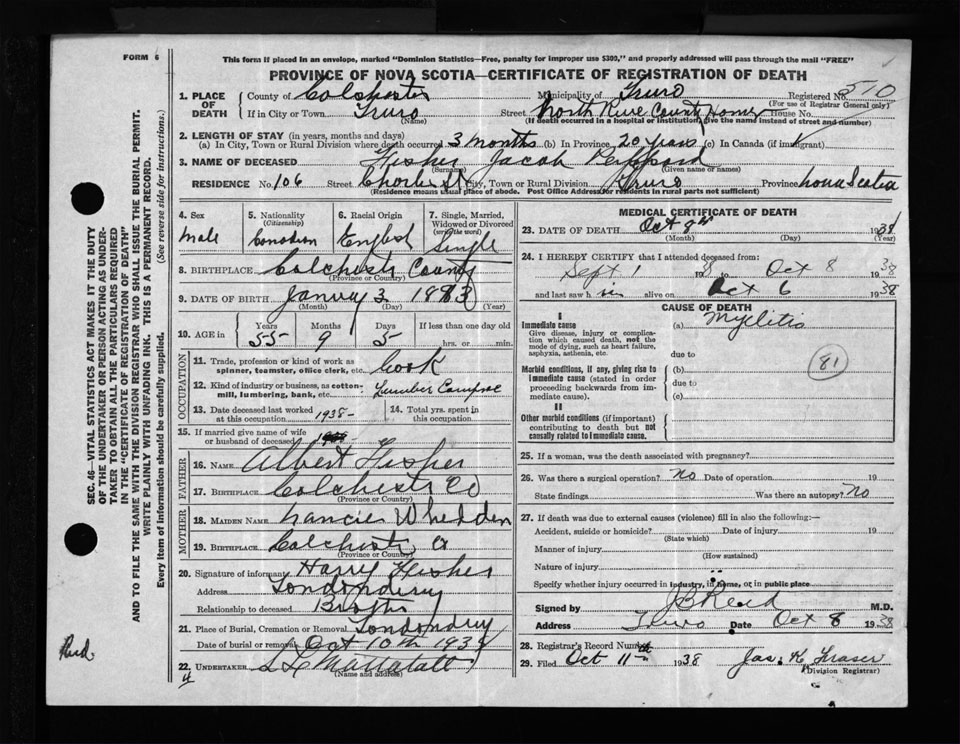 FORM 6
This form if placed in an envelope, marked "Dominion Statistics—Free, penalty for improper use $300," and properly addressed will pass through the mail "FREE"
PROVINCE OF NOVA SCOTIA—CERTIFICATE OF REGISTRATION OF DEATH
1. PLACE OF DEATH County of Colchester Municipality of Truro Registered No. 510
(For use of Registrar General only)
If in City or Town Truro Street North River County Home House No.
(Name) (If death occurred in a hospital or institution, give the name instead of street and number)
2. LENGTH OF STAY (in years, months and days)
(a) In City, Town or Rural Division where death occurred 3 months (b) In Province 20 years (c) In Canada (if immigrant)
3. NAME OF DECEASED Fisher Jacob
(Surname) (Given name or names)
RESIDENCE No. 106 Street Charles St City, Town or Rural Division Truro Province Nova Scotia
(Residence means usual place of abode. Post Office Address for residents in rural parts not sufficient)
4. Sex
male
5. Nationality (Citizenship)
Canadian
6. Racial Origin
English
7. Single, Married, Widowed or Divorced (write the word)
Single
8. BIRTHPLACE Colchester County
(Province or Country)
9. DATE OF BIRTH Janury 3 1883
(Month) (Day) (Year)
10. AGE in Years Months Days If less than one day old
55 9 5 hrs. or min.
OCCUPATION
11. Trade, profession or kind of work as spinner, teamster, office clerk, etc. Cook
12. Kind of industry or business, as cotton-mill, lumbering, bank, etc. Lumber Camps
13. Date deceased last worked at this occupation 1938-
14. Total yrs. spent in this occupation
15. If married give name of wife or husband of deceased
FATHER
16. NAME Albert Fisher
17. BIRTHPLACE Colchester Co
(Province or Country)
MOTHER
18. MAIDEN NAME Nancie Whedden
19. BIRTHPLACE Colchester Co
(Province or Country)
20. Signature of informant Harry Fisher
Address Londonderry
Relationship to deceased Brother
21. Place of Burial, Cremation or Removal Londonderry
Date of burial or removal Oct 10th 1938
22. UNDERTAKER Mattatall
(Name and address)
4
MEDICAL CERTIFICATE OF DEATH
23. DATE OF DEATH Oct 8th 1938
(Month) (Day) (Year)
24. I HEREBY CERTIFY that I attended deceased from:
Sept 1 38 to Oct 8 1938
and last saw h im alive on Oct 6 1938
CAUSE OF DEATH
I
Immediate cause (a) Myelitis
Give disease, injury or complication which caused death, not the mode of dying, such as heart failure, asphyxia, asthenia, etc.
due to
Morbid conditions, if any, giving rise to immediate cause (stated in order proceeding backwards from immediate cause). (b)
due to
(c)
81
II
Other morbid conditions (if important) contributing to death but not causally related to immediate cause.
25. If a woman, was the death associated with pregnancy?
26. Was there a surgical operation? No Date of operation 19
State findings Was there an autopsy? No
27. If death was due to external causes (violence) fill in also the following:—
Accident, suicide or homicide? Date of injury 19
(State which)
Manner of injury
(How sustained)
Nature of injury
Specify whether injury occurred in industry, in home, or in public place
Signed by J B Reid M.D.
Address Truro Date Oct 8 1938
28. Registrar's Record Number
29. Filed Oct 11 1938 Jas. K. Fraser
(Division Registrar)
SEC. 46—VITAL STATISTICS ACT MAKES IT THE DUTY
OF THE UNDERTAKER OR PERSON ACTING AS UNDER-
TAKER TO OBTAIN ALL THE PARTICULARS REQUIRED
IN THE "CERTIFICATE OF REGISTRATION OF DEATH"
AND TO FILE THE SAME WITH THE DIVISION REGISTRAR WHO SHALL ISSUE THE BURIAL PERMIT.
WRITE PLAINLY WITH UNFADING INK. THIS IS A PERMANENT RECORD.
Every item of information should be carefully supplied. (See reverse side for instructions.)